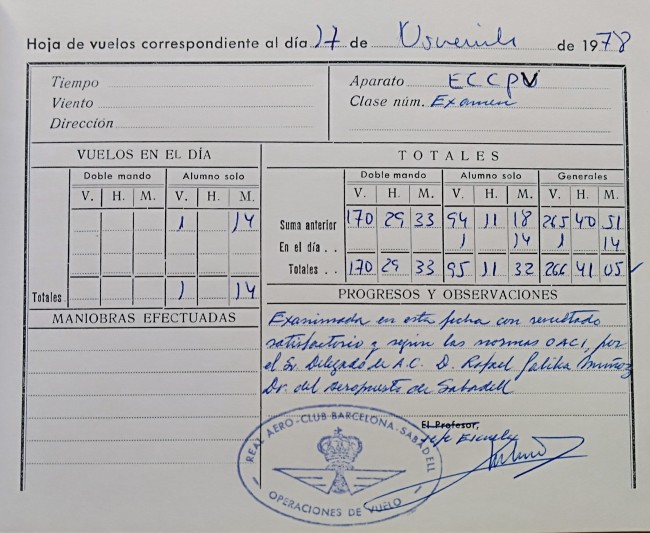 Hoja de vuelos correspondiente al día 17 de de 1978
Tiempo
Viento
Dirección
Aparato ECCPV
Clase núm. Examen
VUELOS EN EL DÍA
Doble mando Alumno solo
V. H. M. V. H. M.
1 14
Totales 1 14
MANIOBRAS EFECTUADAS
TOTALES
Doble mando Alumno solo Generales
V. H. M. V. H. M. V. H. M.
Suma anterior 170 29 33 94 11 18 265 40 51
En el día . . 1 14 1 14
Totales . . 170 29 33 95 11 32 266 41 05
PROGRESOS Y OBSERVACIONES
Examinada en esta fecha con resultado
satisfactorio y según las normas OACI, por
el Sr. Delegado de A.C. D. Rafael Muñoz
Dr. del Aeropuerto de Sabadell
El Profesor,
Jefe Escuela
REAL AERO-CLUB BARCELONA-SABADELL
OPERACIONES DE VUELO